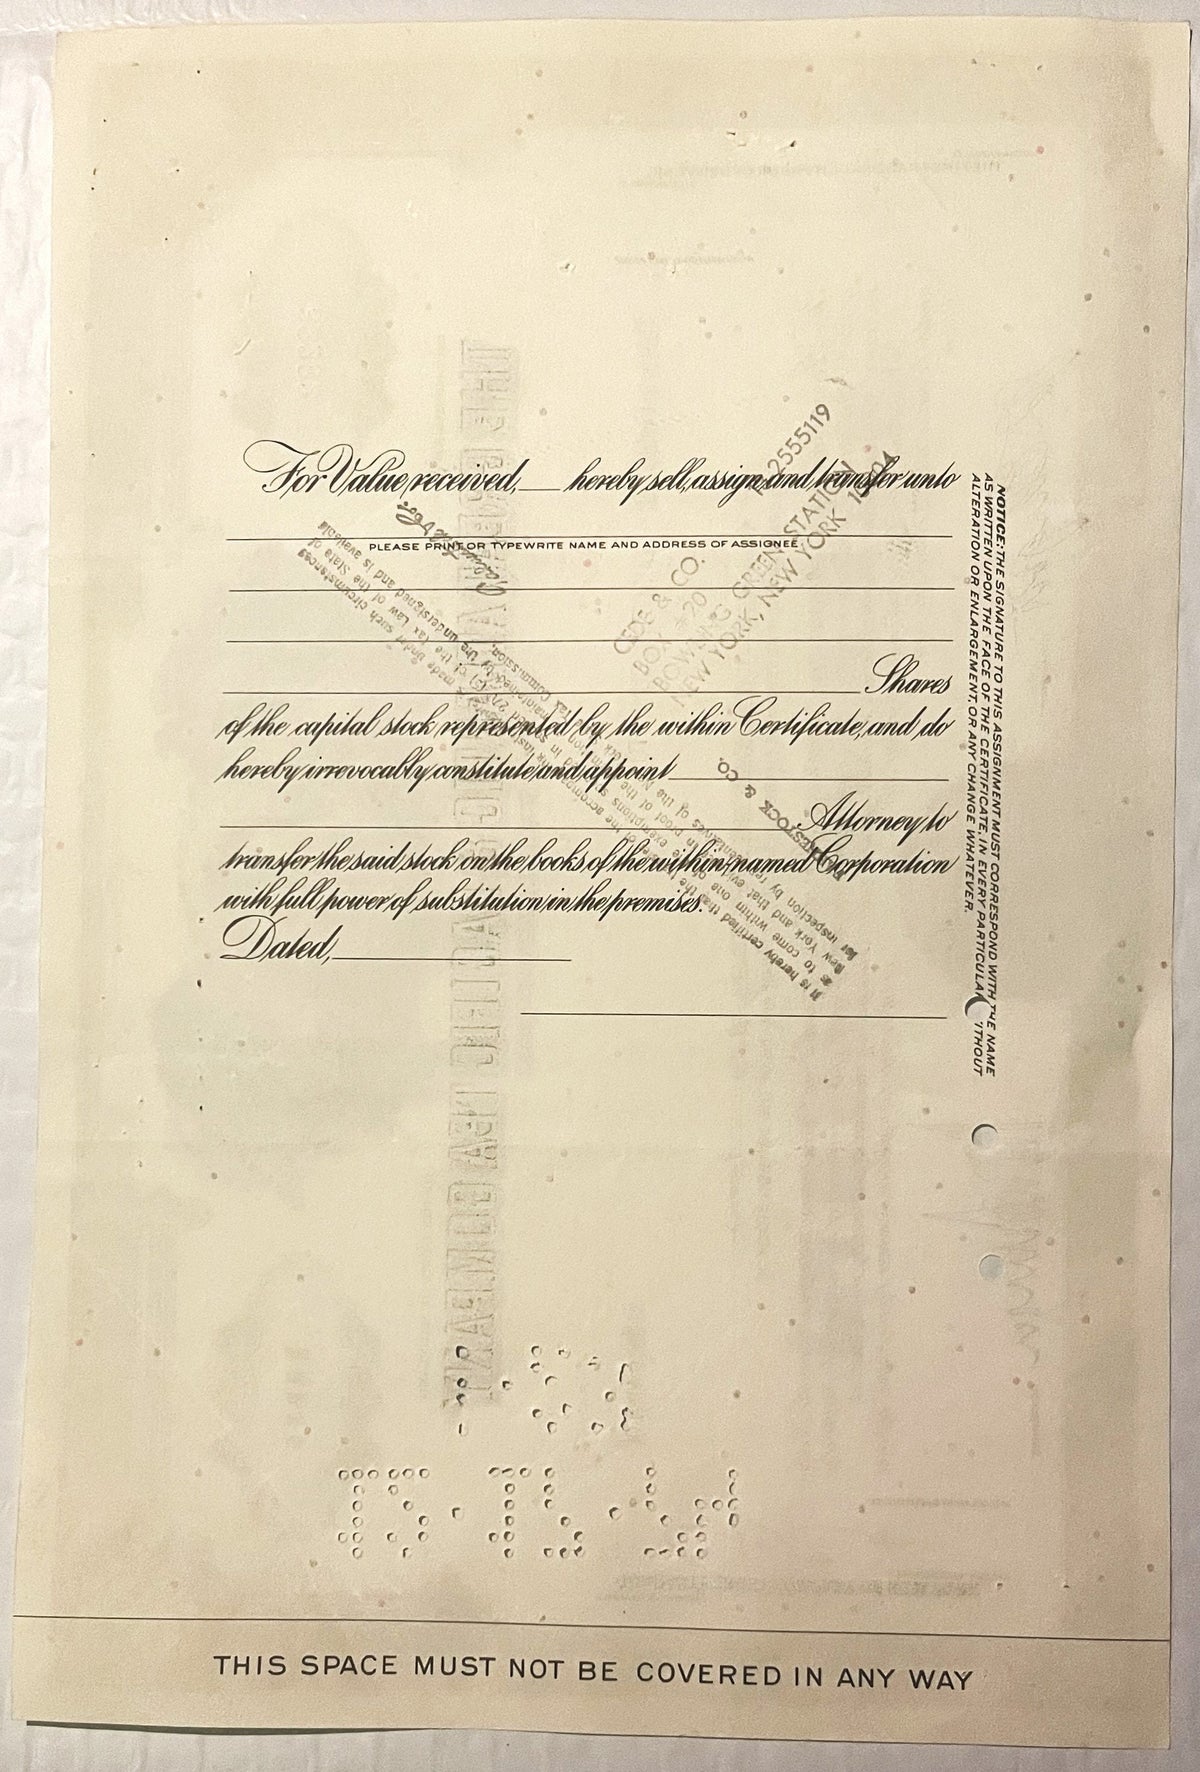 For Value received, ___ hereby sell, assign and transfer unto
PLEASE PRINT OR TYPEWRITE NAME AND ADDRESS OF ASSIGNEE
Shares
of the capital stock represented by the within Certificate, and do
hereby irrevocably constitute and appoint
Attorney to
transfer the said stock on the books of the within named Corporation
with full power of substitution in the premises.
Dated,
NOTICE: THE SIGNATURE TO THIS ASSIGNMENT MUST CORRESPOND WITH THE NAME
AS WRITTEN UPON THE FACE OF THE CERTIFICATE, IN EVERY PARTICULAR ITHOUT
ALTERATION OR ENLARGEMENT, OR ANY CHANGE WHATEVER.
2555119
CEDE & CO.
BOX #20
BOWLING GREEN STATION
NEW YORK, NEW YORK 10004
It is hereby certified that the
as to come within one of the
New York and that
for inspection by representatives of the
made under such circumstances
Tax Law of the State of
by the undersigned and is available
Tax Commission.
& CO.
THIS SPACE MUST NOT BE COVERED IN ANY WAY